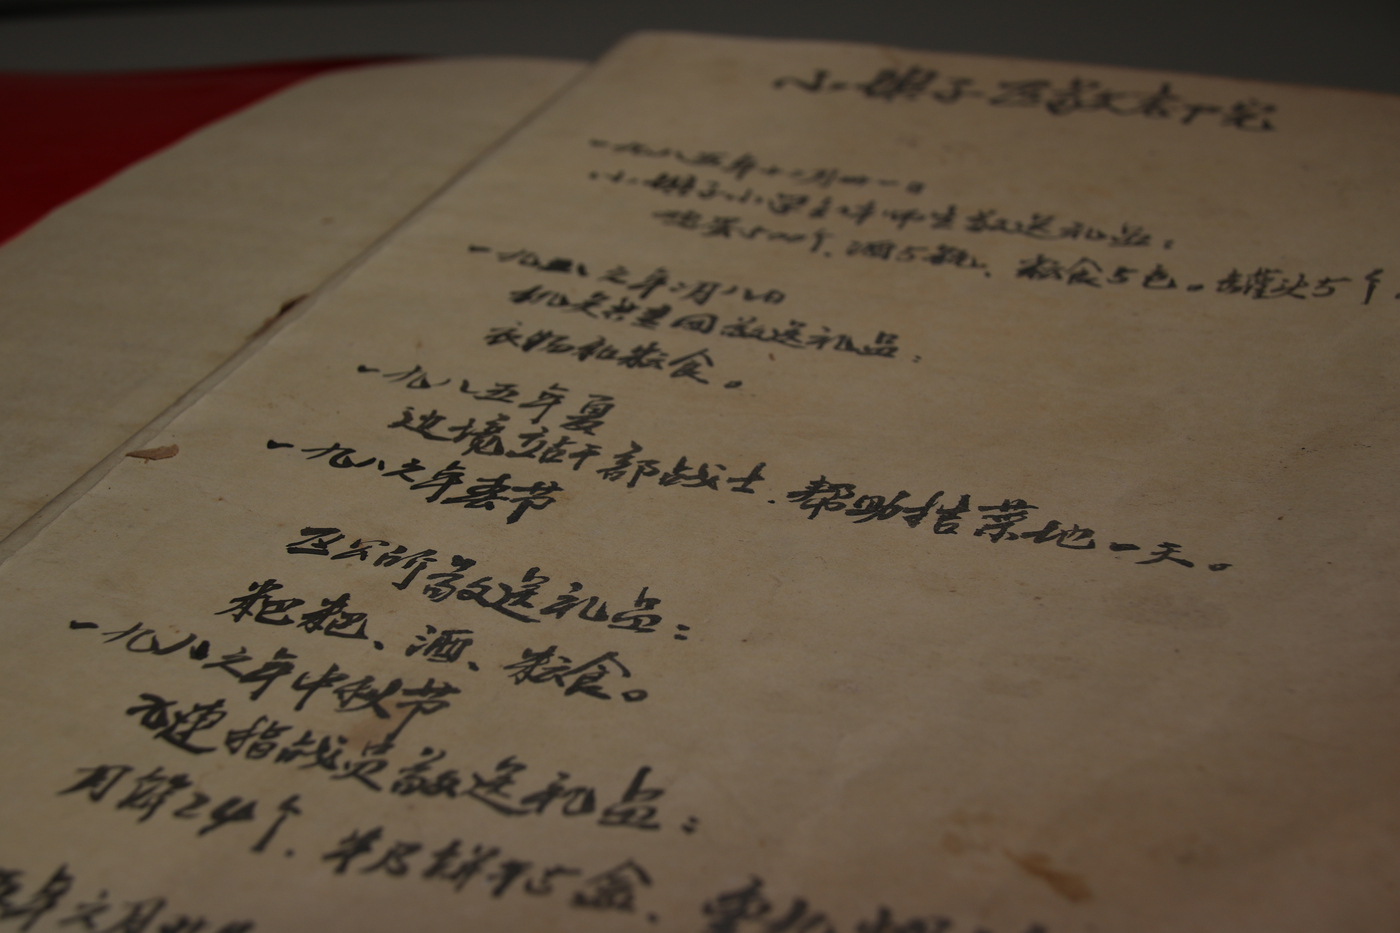 小 子区敬老院
一九八五年十二月卅一日
小 子小学全体师生敬送礼品：
500个、酒5瓶、粮食5包。罐头5个
一九八六年二月八日
机关共青团敬送礼品：
衣物和粮食。
一九八五年夏
边境站干部战士，帮助 菜地一天。
一九八六年春节
区公所敬送礼品：
粑粑、酒、粮食。
一九八六年中秋节
连指战员敬送礼品：
月饼24个、牛乃饼干5盒、
年六月